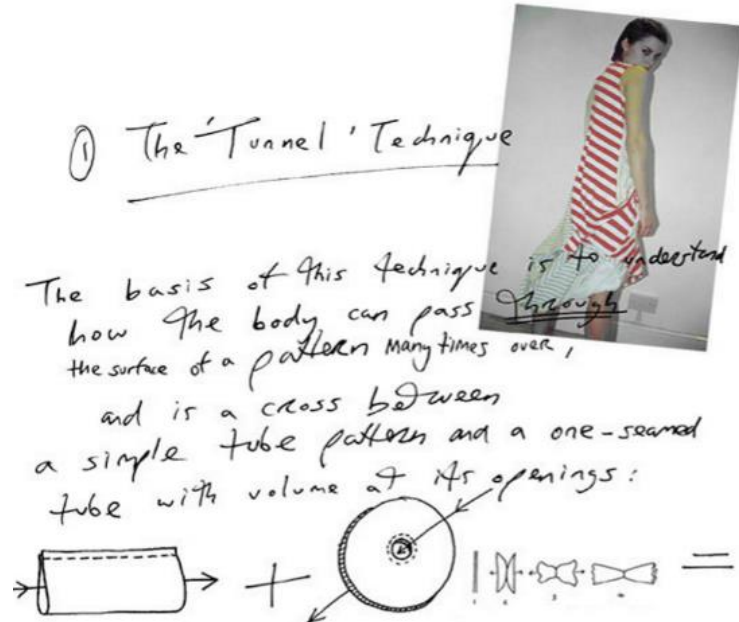 ① The 'Tunnel' Technique
The basis of this technique is to understand
how the body can pass through
the surface of a pattern many times over,
and is a cross between
a simple tube pattern and a one-seamed
tube with volume at its openings:
+ =